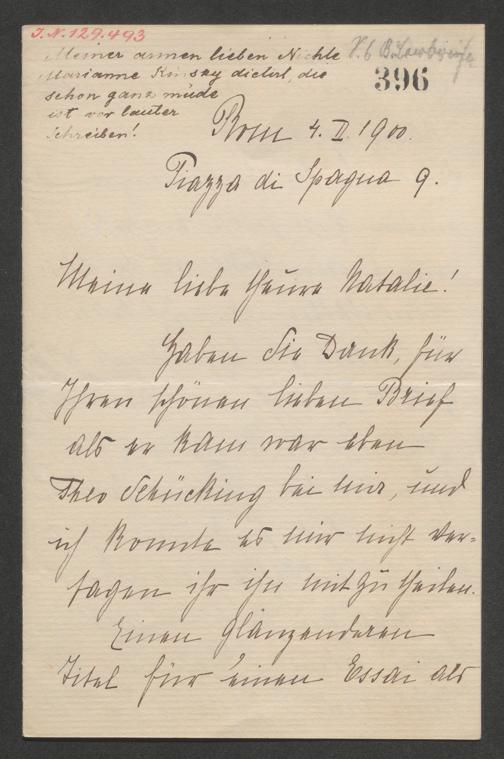 I.N. 129.493
Meiner armen lieben Nichte
Marianne Kinsky dictirt, die
schon ganz müde
ist vor lauter
Schreiben!
396
Rom 4. II. 1900.
Piazza di Spagna 9.
Meine liebe theure Natalie!
Haben Sie Dank, für
Ihren schönen lieben Brief
als er kam war eben
Theo Schücking bei mir, und
ich konnte es mir nicht ver=
sagen ihr ihn mitzutheilen.
Einen glänzenderen
Titel für einen Essai als